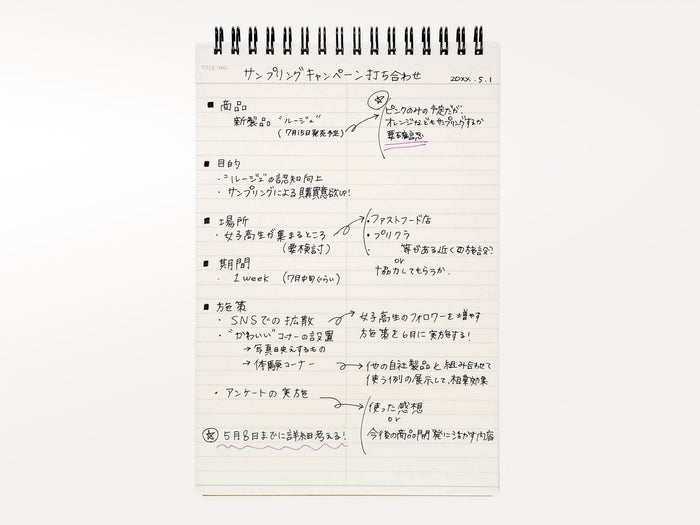 TITLE/NO.
サンプリングキャンペーン打ち合わせ 20XX.5.1
■ 商品
新製品 "ルージュ"
(7月15日発売予定)
☆
ピンクのみの予定だが、
オレンジなどもサンプリングするか
要確認
■ 目的
・"ルージュ"の認知向上
・サンプリングによる購買意欲UP!
■ 場所
・女子高生が集まるところ
(要検討)
・ファストフード店
・プリクラ
・ 等がある近くの施設?
or
協力してもらうか.
■ 期間
・1 week (7月中旬ぐらい)
■ 施策
・SNSでの拡散
女子高生のフォロワーを増やす
施策を6月に実施する!
・"かわいい"コーナーの設置
→ 写真映えするもの
→ 体験コーナー
他の自社製品と組み合わせて
使う例の展示して、相乗効果
・アンケートの実施
使った感想
or
今後の商品開発に活かす内容
☆ 5月8日までに詳細考える!